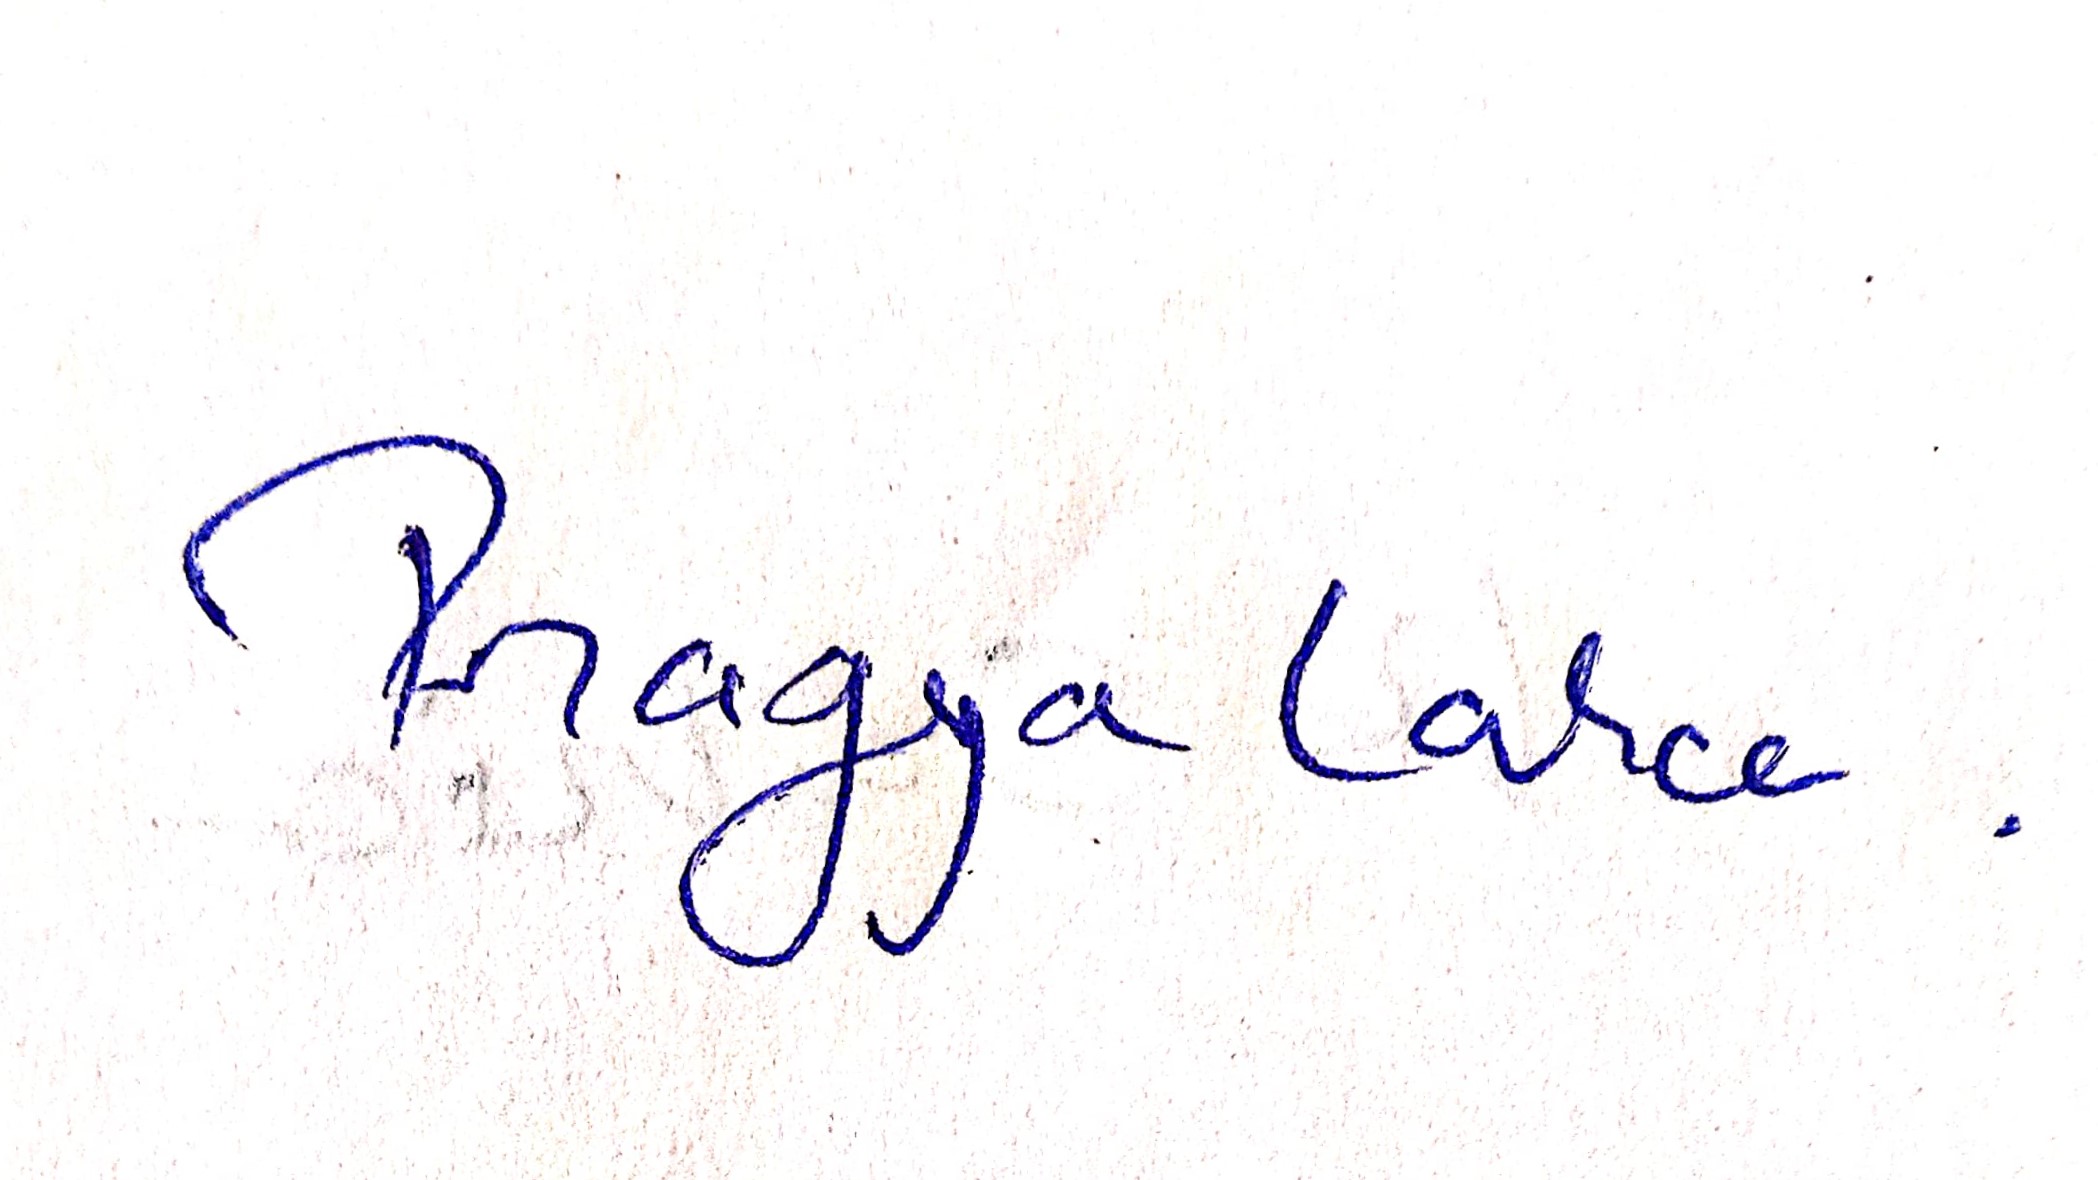 Pragya Larce.